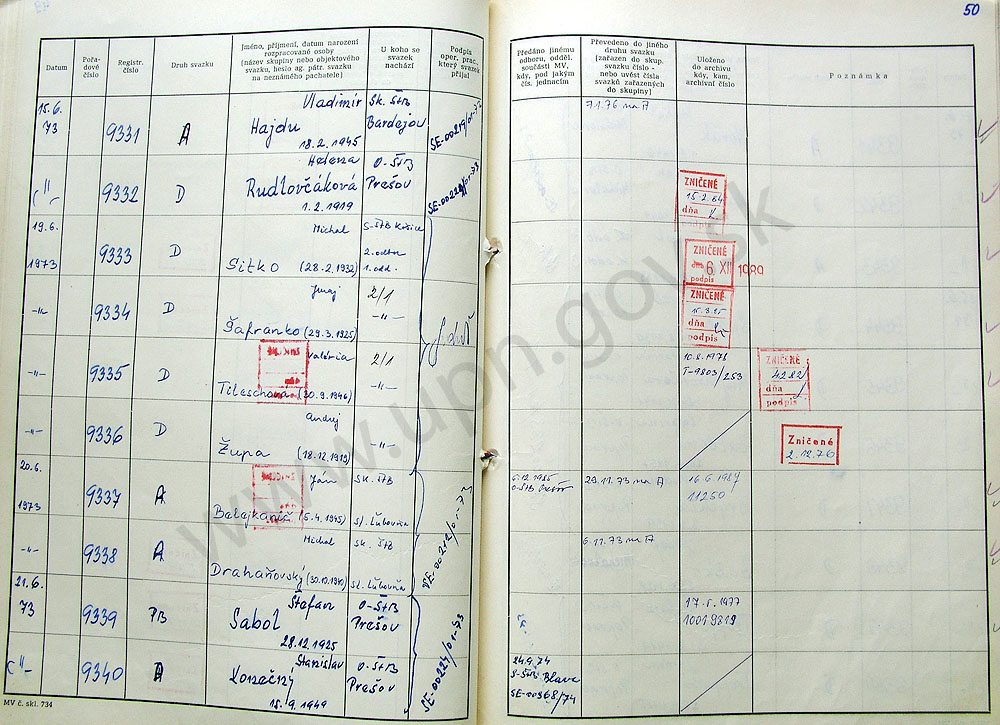 50
Datum
Pořa-
dové
číslo
Registr.
číslo
Druh svazku
Jméno, příjmení, datum narození
rozpracované osoby
(název skupiny nebo objektového
svazku, heslo ag. pátr. svazku
na neznámého pachatele)
U koho se
svazek
nachází
Podpis
oper. prac.,
který svazek
přijal
Předáno jinému
odboru, odděl.
součásti MV,
kdy, pod jakým
čís. jednacím
Převedeno do jiného
druhu svazku
[zařazen do skup.
svazku číslo -
nebo uvést čísla
svazků zařazených
do skupiny]
Uloženo
do archivu
kdy, kam,
archivní číslo
Poznámka
15.6.
73
9331
A
Vladimír
Hajdu
18.2.1945
Sk. ŠtB
Bardejov
SE-00219/01-73
7.1.76 na A
-"-
9332
D
Helena
Rudlovčáková
1.2.1919
O-ŠtB
Prešov
ZNIČENÉ
15.2.84
dňa
podpis
19.6.
1973
9333
D
Michal
Sitko (28.2.1932)
S-ŠtB Košice
2.odbor
1.odd.
ZNIČENÉ
6 XII 1989
podpis
-"-
9334
D
Juraj
Šafranko (29.3.1925)
2/1
-"-
ZNIČENÉ
dňa
podpis
-"-
9335
D
Valéria
Tileschová (30.9.1946)
2/1
-"-
10.8.1976
T-9803/253
ZNIČENÉ
4282
dňa
podpis
-"-
9336
D
Andrej
Župa (18.12.1919)
-"-
Zničené
2.12.76
20.6.
1973
9337
A
Ján
(5.4.1945)
Sk. ŠtB
St. Ľubovňa
6.12.1985
O-ŠtB Prešov
29.11.73 na A
16.6.1987
11250
-"-
9338
A
Michal
Drahaňovský (30.10.1940)
Sk. ŠtB
St. Ľubovňa
6.11.73 na A
21.6.
73
9339
PB
Štefan
Sabol
28.12.1925
O-ŠtB
Prešov
1977
10019319
-"-
9340
A
Stanislav
Konečný
15.9.1949
O-ŠtB
Prešov
SE-00224/01-73
24.9.74
S-ŠtB Blava
SE-00368/74
MV č. skl. 734
www.upn.gov.sk